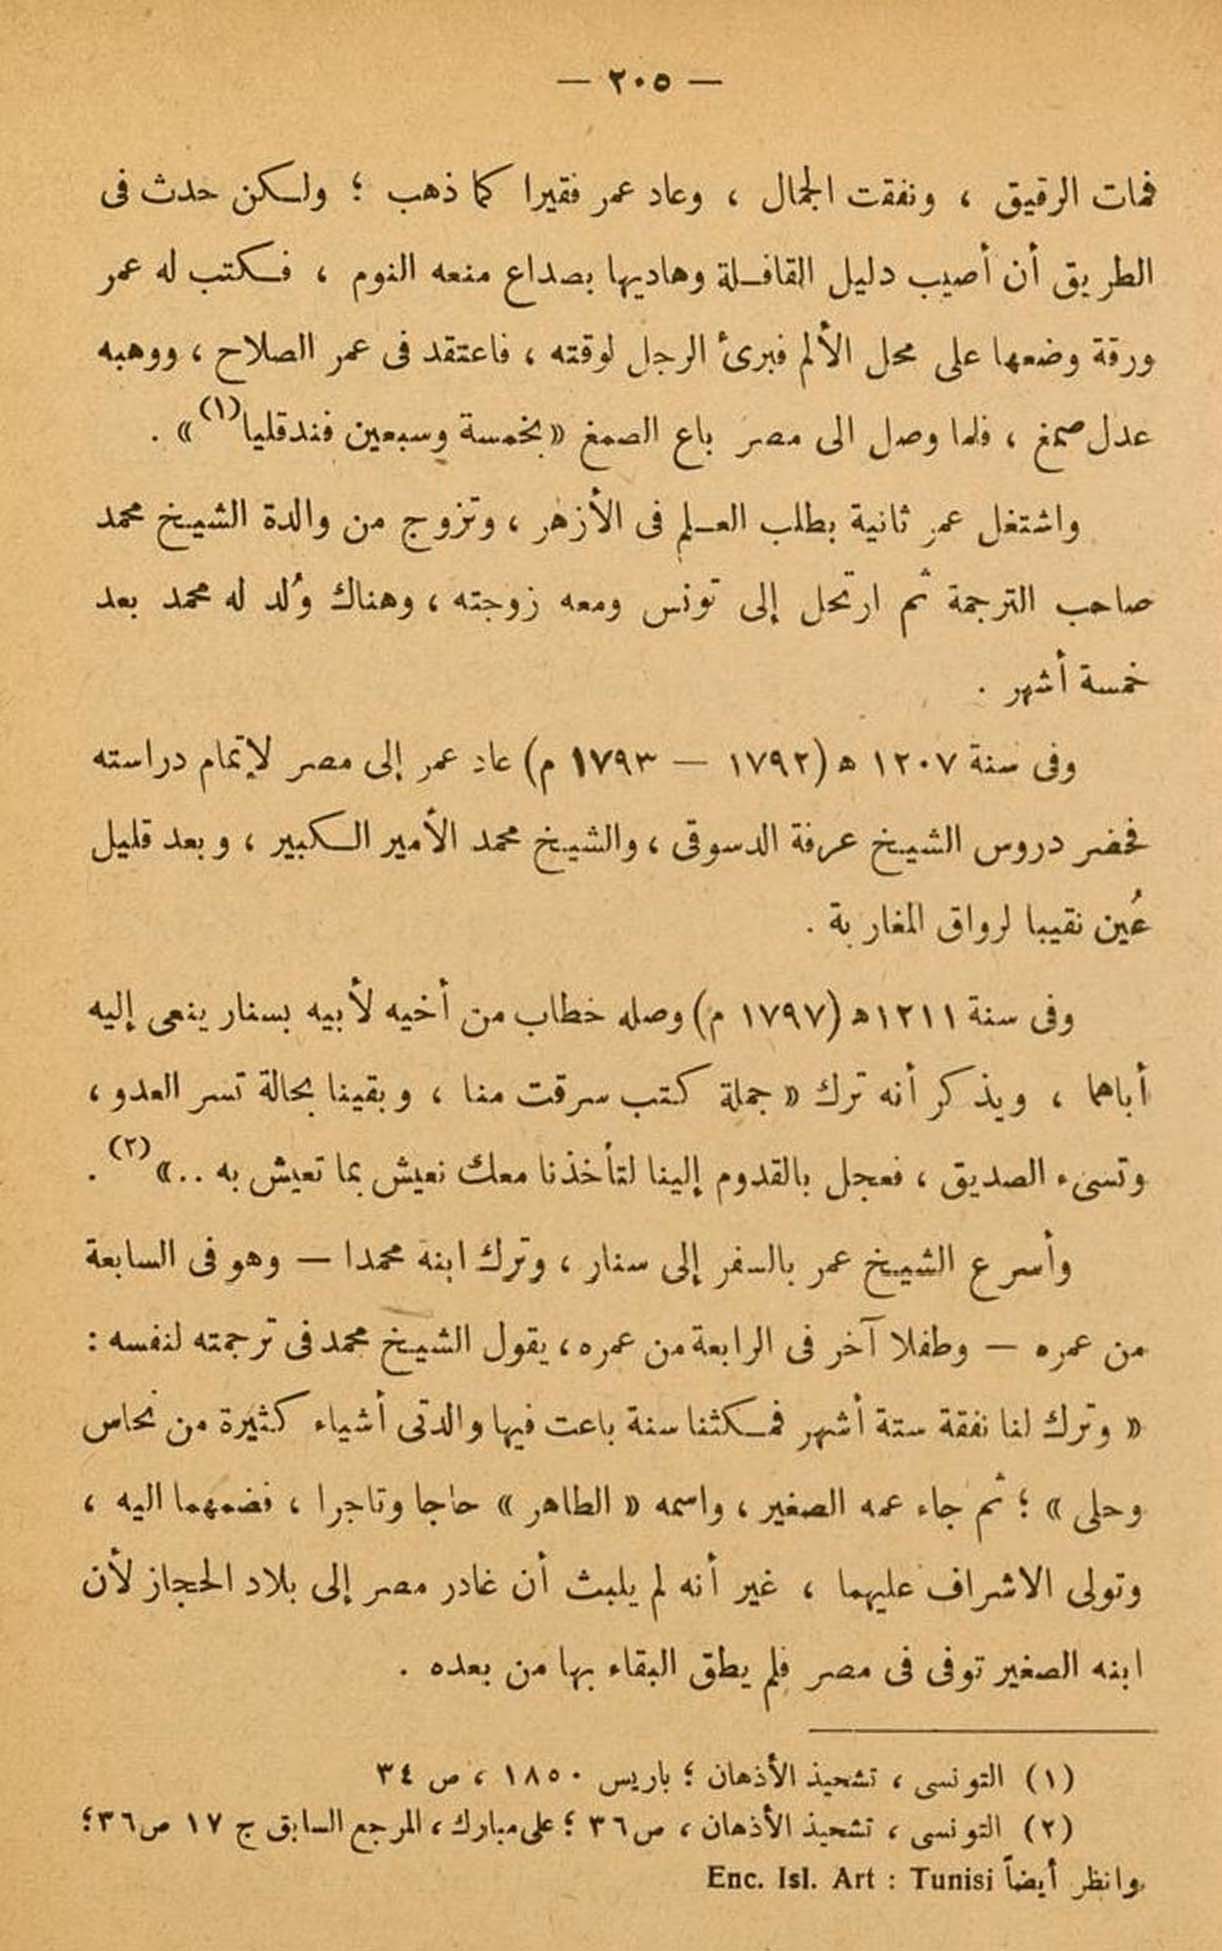 — ٢٠٥ —
فمات الرقيق ، ونفقت الجمال ، وعاد عمر فقيرا كما ذهب ؛ ولكن حدث فى
الطريق أن أصيب دليل القافلة وهاديها بصداع منعه النوم ، فكتب له عمر
ورقة وضعها على محل الألم فبرئ الرجل لوقته ، فاعتقد فى عمر الصلاح ، ووهبه
عدل صمغ ، فلما وصل الى مصر باع الصمغ « بخمسة وسبعين فندقليا(١) » .
واشتغل عمر ثانية بطلب العلم فى الأزهر ، وتزوج من والدة الشيخ محمد
صاحب الترجمة ثم ارتحل إلى تونس ومعه زوجته ، وهناك وُلد له محمد بعد
خمسة أشهر .
وفى سنة ١٢٠٧ ه (١٧٩٢ — ١٧٩٣ م) عاد عمر إلى مصر لإتمام دراسته
فحضر دروس الشيخ عرفة الدسوقى ، والشيخ محمد الأمير الكبير ، وبعد قليل
عُين نقيبا لرواق المغاربة .
وفى سنة ١٢١١ه (١٧٩٧ م) وصله خطاب من أخيه لأبيه بسنار ينعى إليه
أباهما ، ويذكر أنه ترك « جملة كتب سرقت منا ، وبقينا بحالة تسر العدو ،
وتسىء الصديق ، فعجل بالقدوم إلينا لتأخذنا معك نعيش بما تعيش به .. »(٢) .
وأسرع الشيخ عمر بالسفر إلى سنار ، وترك ابنه محمدا — وهو فى السابعة
من عمره — وطفلا آخر فى الرابعة من عمره ، يقول الشيخ محمد فى ترجمته لنفسه :
« وترك لنا نفقة ستة أشهر فمكثنا سنة باعت فيها والدتى أشياء كثيرة من نحاس
وحلى » ؛ ثم جاء عمه الصغير ، واسمه « الطاهر » حاجا وتاجرا ، فضمهما اليه ،
وتولى الاشراف عليهما ، غير أنه لم يلبث أن غادر مصر إلى بلاد الحجاز لأن
ابنه الصغير توفى فى مصر فلم يطق البقاء بها من بعده .
(١) التونسى ، تشحيذ الأذهان ؛ باريس ١٨٥٠ ، ص ٣٤
(٢) التونسى ، تشحيذ الأذهان ، ص ٣٦ ؛ على مبارك ، المرجع السابق ج ١٧ ص ٣٦ ؛
وانظر أيضاً Enc. Isl. Art : Tunisi